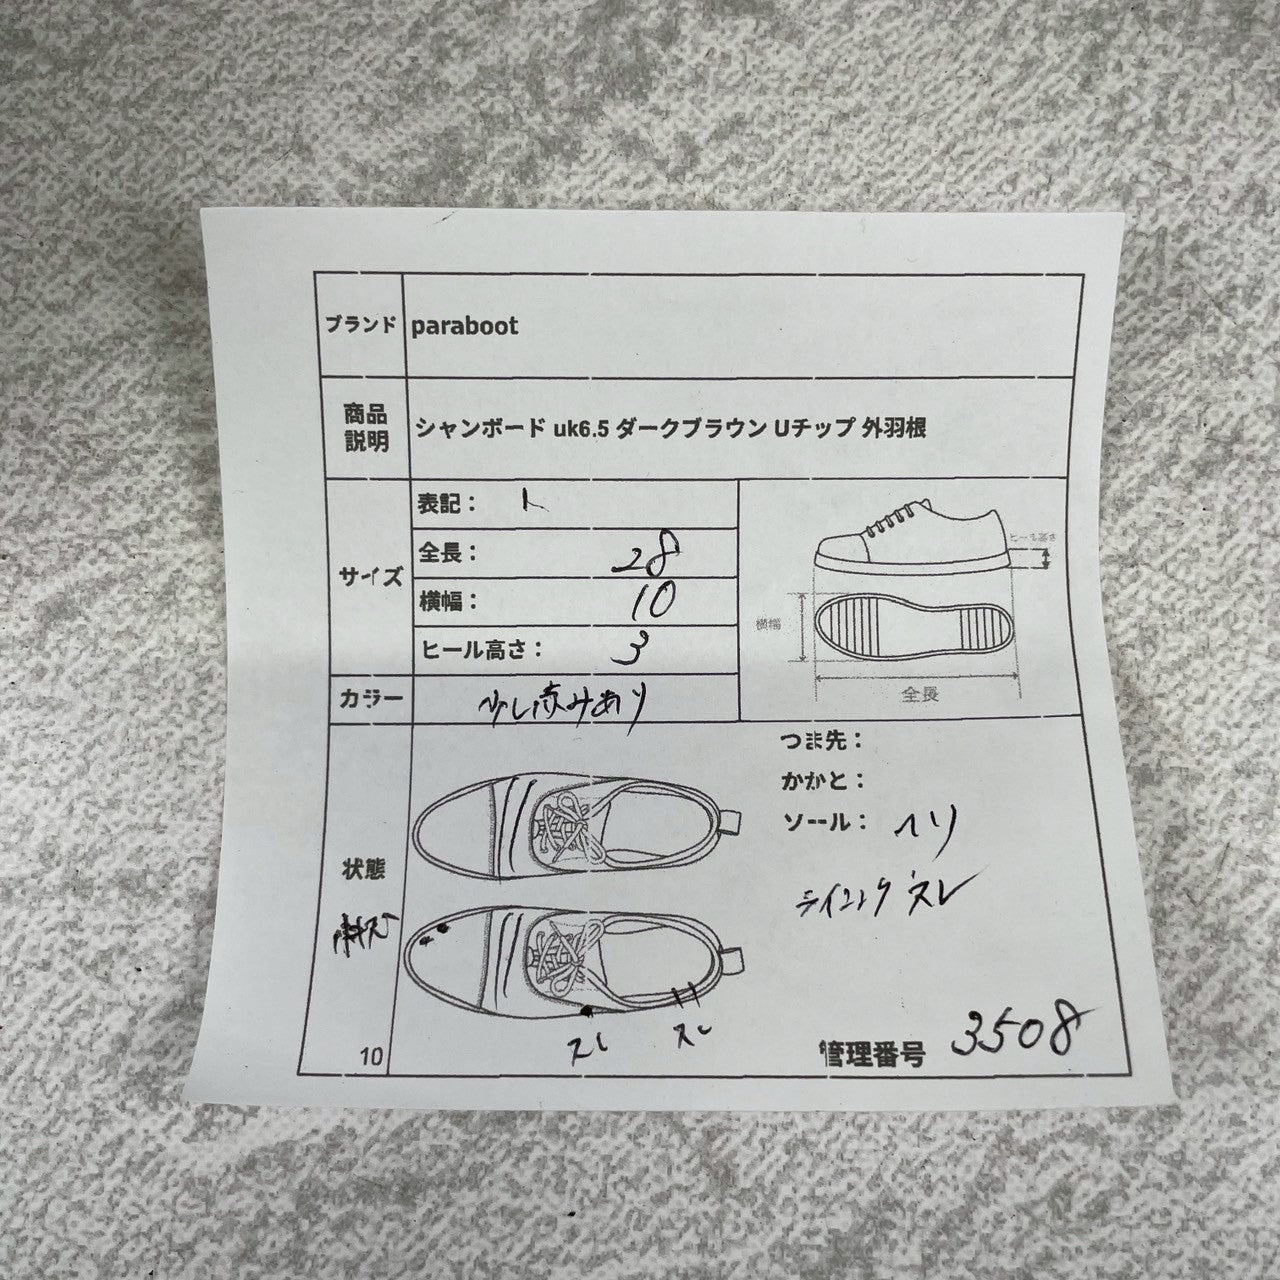 ブランド paraboot
商品説明 シャンボード uk6.5 ダークブラウン Uチップ 外羽根
サイズ
表記：
全長： 28
横幅： 10
ヒール高さ： 3
ヒール高さ
横幅
全長
カラー 少し赤みあり
状態
つま先：
かかと：
ソール： ヘリ
ライニング スレ
スレ
スレ
10
管理番号 3508